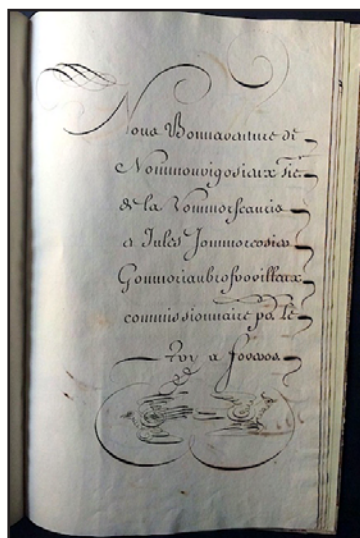 Nous Bonnavanture de
Nommouvigosiaux Sie
de la Rommorscaucis
a Jules Jommorcosico
Gommoriaubrosvovilleaux
commissionnaire pa le
Roy a